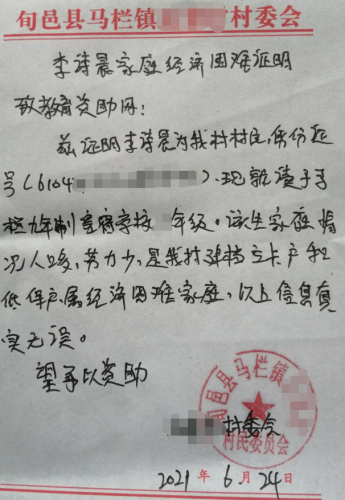 旬邑县马栏镇 村委会
李诗晨家庭经济困难证明
致教育资助网：
兹证明李诗晨为我村村民，身份证
号（6104 ）．现就读于
九年制 学校 年级。该生家庭情
况人口多，劳力少，是我村建档立卡户和
低保户，属经济困难家庭，以上信息真
实无误。
望予以资助
旬邑县马栏镇
村委会
村民委员会
2021年6月24日